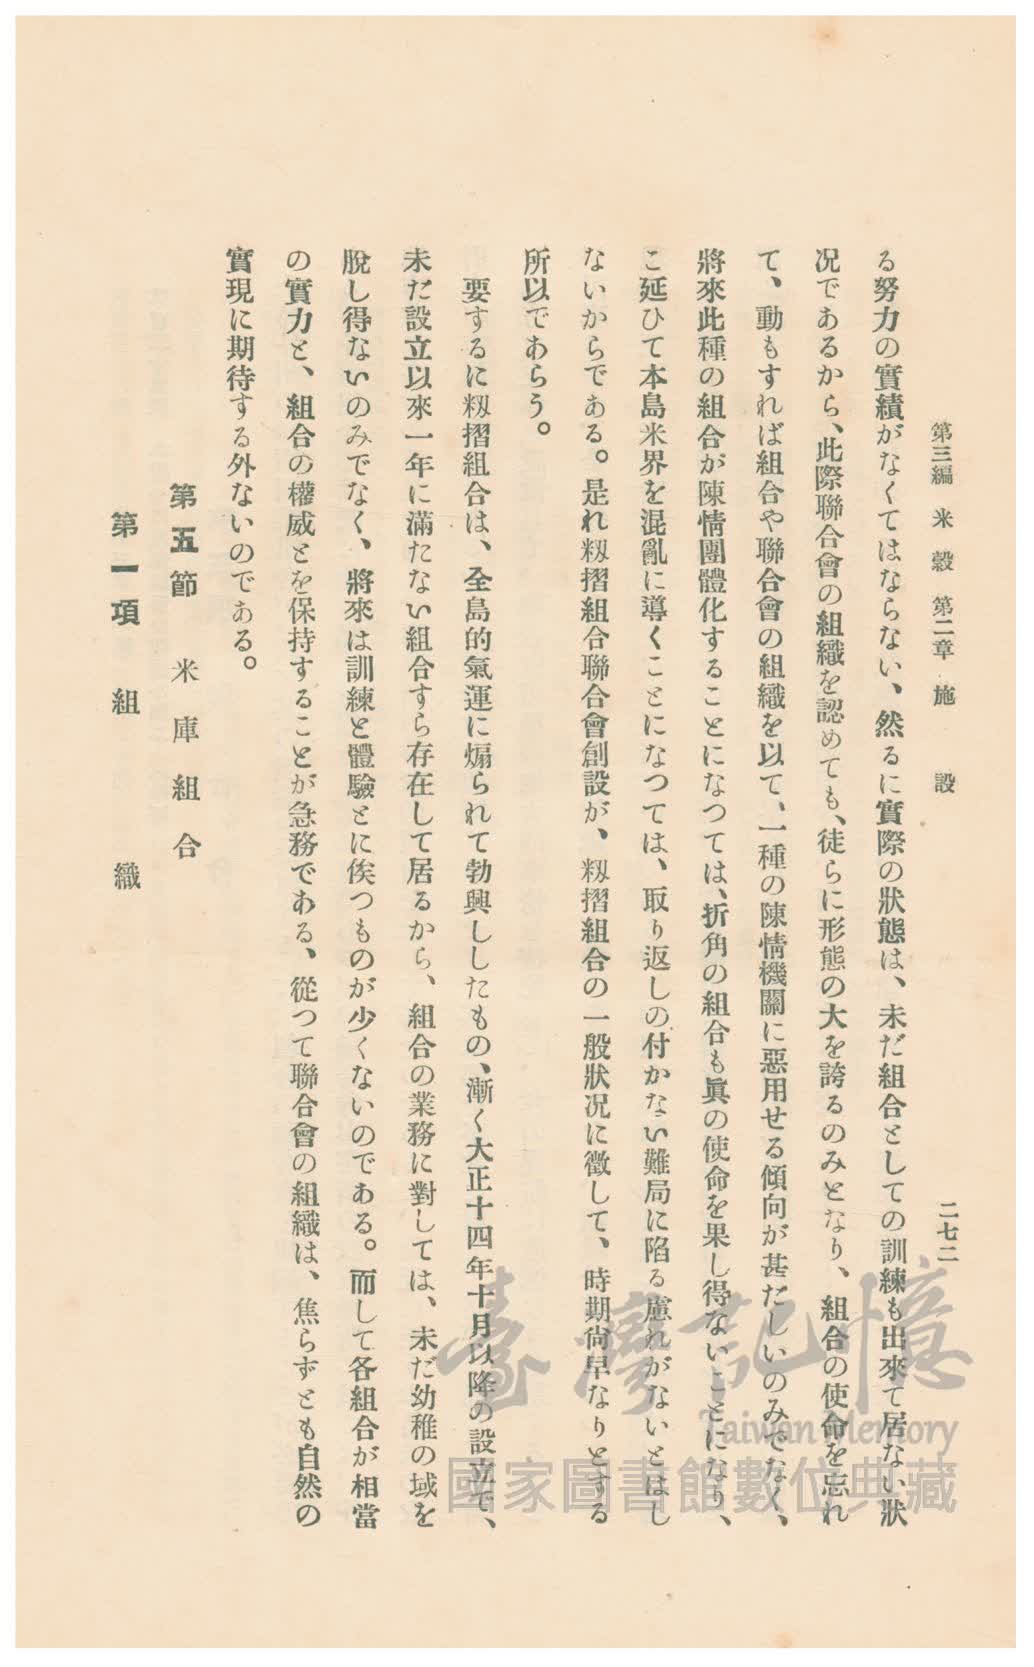 第三編 米穀 第二章 施設 二七二
る努力の實績がなくてはならない、然るに實際の狀態は、未だ組合としての訓練も出來て居ない狀
況であるから、此際聯合會の組織を認めても、徒らに形態の大を誇るのみとなり、組合の使命を忘れ
て、動もすれば組合や聯合會の組織を以て、一種の陳情機關に惡用せる傾向が甚だしいのみでなく、
將來此種の組合が陳情團體化することになつては、折角の組合も眞の使命を果し得ないことになり、
こ延ひて本島米界を混亂に導くことになつては、取り返しの付かない難局に陷る慮れがないとはし
ないからである。是れ籾摺組合聯合會創設が、籾摺組合の一般狀況に徵して、時期尙早なりとする
所以であらう。
要するに籾摺組合は、全島的氣運に煽られて勃興ししたもの、漸く大正十四年十月以降の設立で、
未だ設立以來一年に滿たない組合すら存在して居るから、組合の業務に對しては、未だ幼稚の域を
脫し得ないのみでなく、將來は訓練と體驗とに俟つものが少くないのである。而して各組合が相當
の實力と、組合の權威とを保持することが急務である、從つて聯合會の組織は、焦らずとも自然の
實現に期待する外ないのである。
第五節 米庫組合
第一項 組織
臺灣記憶
Taiwan Memory
國家圖書館數位典藏